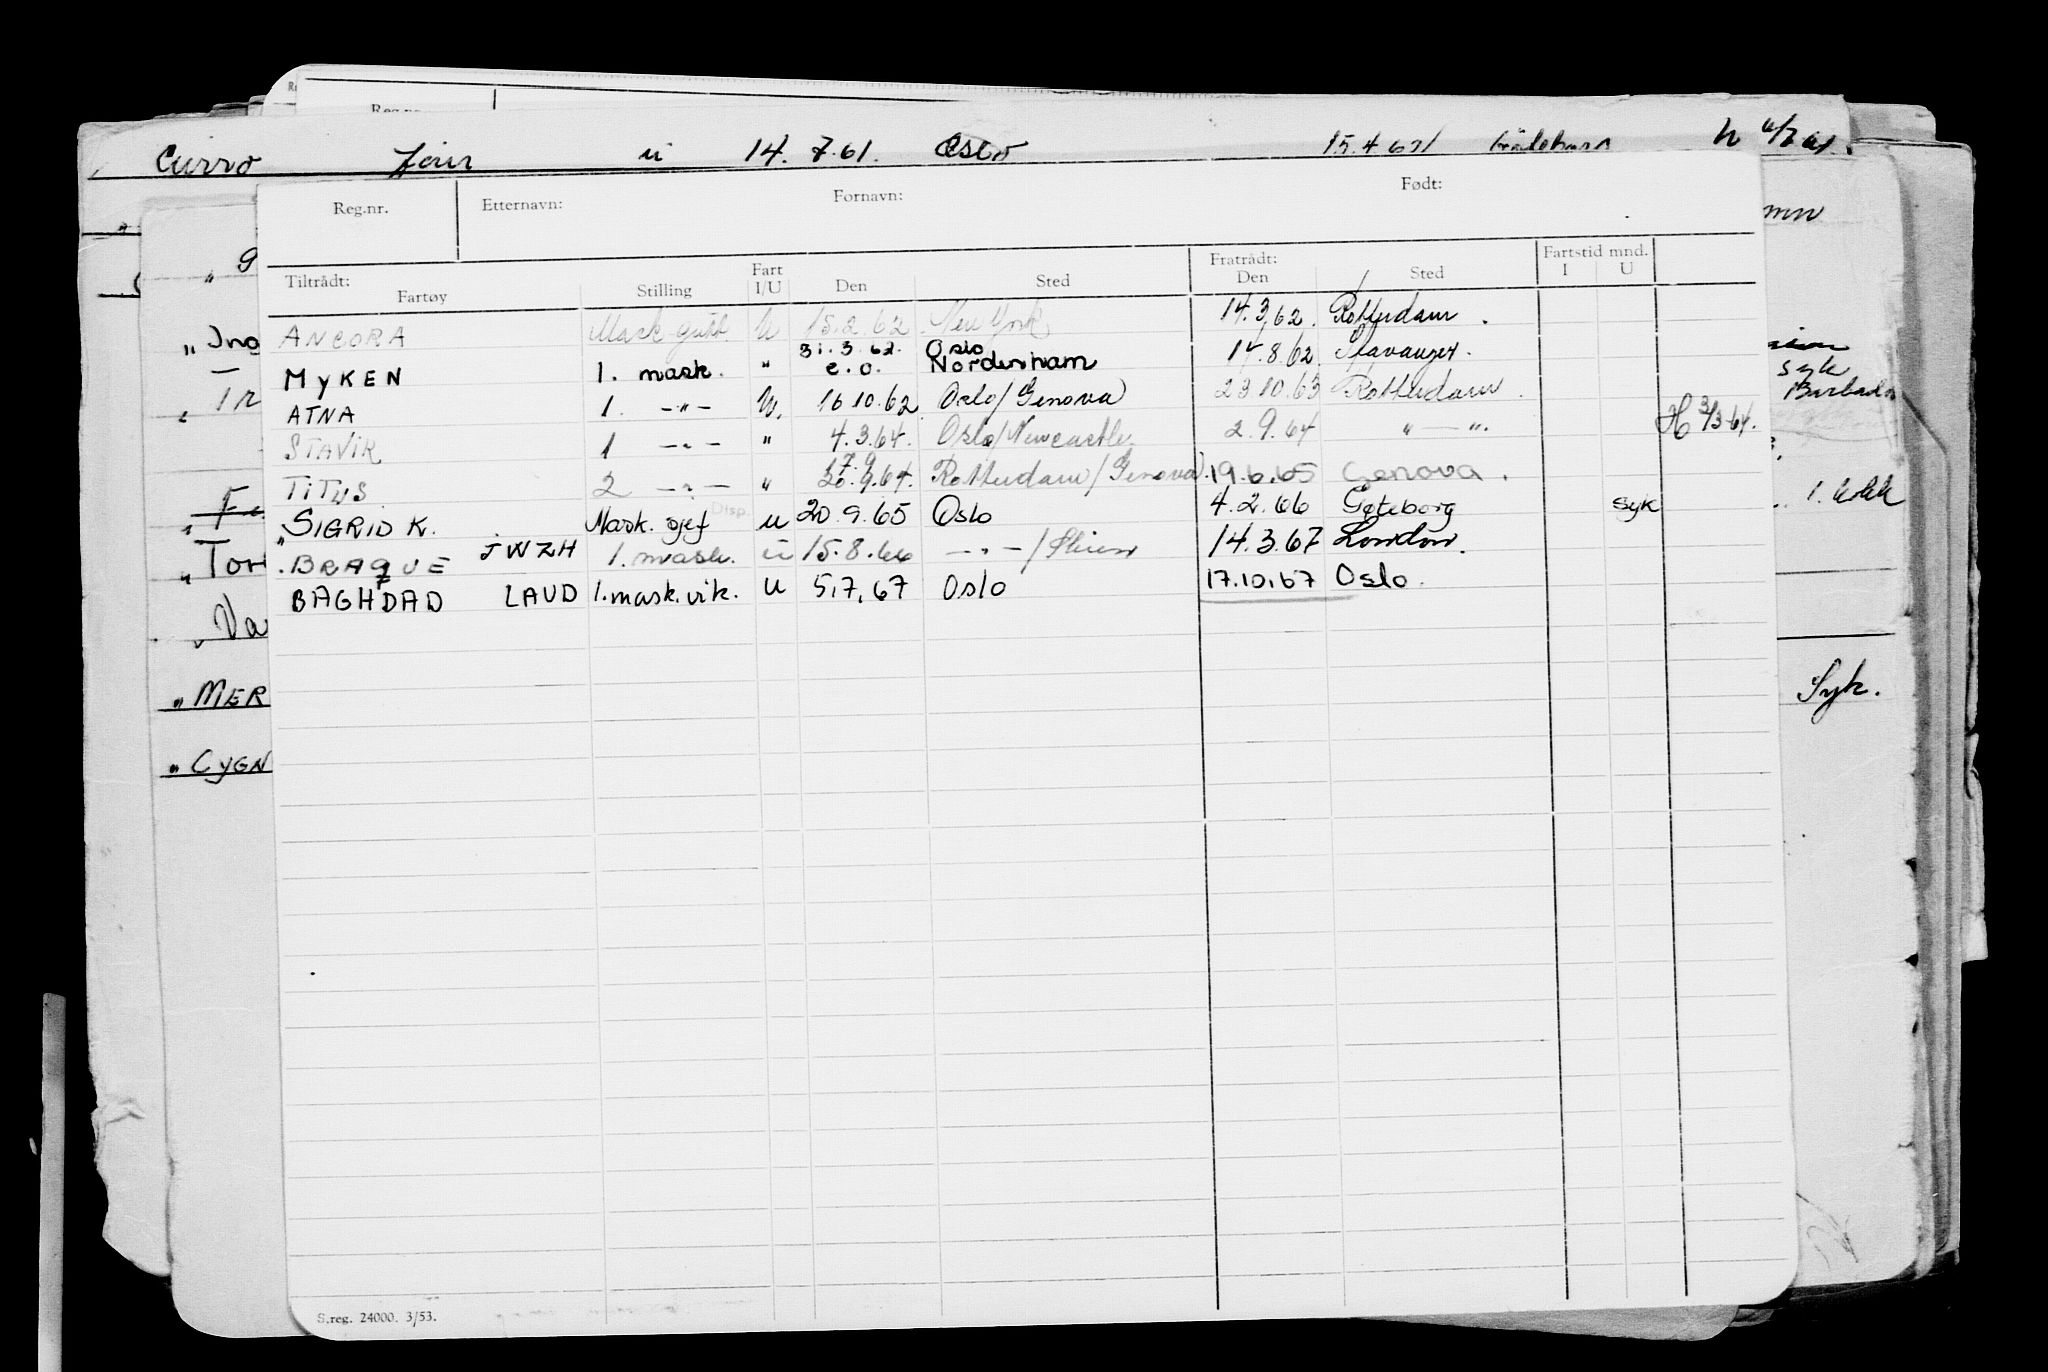 Curro u 14. 7. 61. Oslo 15.4.61
Reg.nr. Etternavn: Fornavn: Født:
Tiltrådt: Fartøy Stilling Fart I/U Den Sted Fratrådt: Den Sted Fartstid mnd. I U
ANCORA Mask gutt U 15.2.62 New York 14.3.62. Rotterdam.
MYKEN 1. mask. " 31.3.62. e.o. Oslo Nordenham 14.8.62 Stavanger.
ATNA 1. -"- U. 16.10.62 Oslo/Genova 23.10.63 Rotterdam.
STAVIK 1 -"- " 4.3.64. Oslo/Newcastle. 2.9.64 " — ". H 3/3 64.
TITUS 2 -"- " 17.9 .9.64. Rotterdam/Genova 19.6.65 Genova.
" SIGRID K. Mask. sjef Disp. u 20.9.65 Oslo 4.2.66 Gøteborg syk
. BRAQUE JWZH 1. mask. u 15.8.66 -"-/Skien 14.3.67 London.
BAGHDAD LAUD 1. mask. vik. u 5.7.67 Oslo 17.10.67 Oslo.
syk
Barbados
" Tor
" Va
" MER Syk.
" CYGN
S.reg. 24000. 3/53.